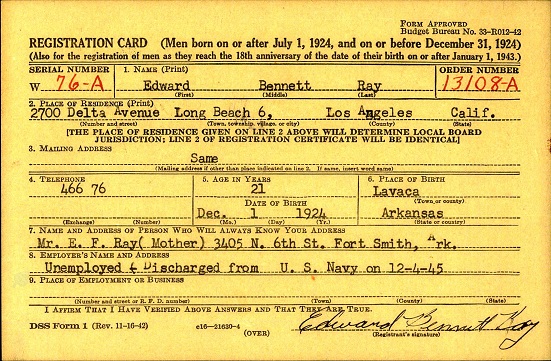 FORM APPROVED
Budget Bureau No. 33-R012-42
REGISTRATION CARD (Men born on or after July 1, 1924, and on or before December 31, 1924)
(Also for the registration of men as they reach the 18th anniversary of the date of their birth on or after January 1, 1943.)
SERIAL NUMBER 1. NAME (Print) ORDER NUMBER
W 76-A Edward Bennett Ray 13108-A
(First) (Middle) (Last)
2. PLACE OF RESIDENCE (Print)
2700 Delta Avenue Long Beach 6, Los Angeles Calif.
(Number and street) (Town, township, village, or city) (County) (State)
[THE PLACE OF RESIDENCE GIVEN ON LINE 2 ABOVE WILL DETERMINE LOCAL BOARD
JURISDICTION; LINE 2 OF REGISTRATION CERTIFICATE WILL BE IDENTICAL]
3. MAILING ADDRESS
Same
(Mailing address if other than place indicated on line 2. If same, insert word same)
4. TELEPHONE 5. AGE IN YEARS 6. PLACE OF BIRTH
466 76 21 Lavaca
DATE OF BIRTH (Town or county)
Dec. 1 1924 Arkansas
(Exchange) (Number) (Mo.) (Day) (Yr.) (State or country)
7. NAME AND ADDRESS OF PERSON WHO WILL ALWAYS KNOW YOUR ADDRESS
Mr. E. F. Ray( Mother) 3405 N. 6th St. Fort Smith, Ark.
8. EMPLOYER'S NAME AND ADDRESS
Unemployed & Discharged from U. S. Navy on 12-4-45
9. PLACE OF EMPLOYMENT OR BUSINESS
(Number and street or R. F. D. number) (Town) (County) (State)
I AFFIRM THAT I HAVE VERIFIED ABOVE ANSWERS AND THAT THEY ARE TRUE.
DSS Form 1 (Rev. 11-16-42) c16-21630-4 Edward Bennett Ray
(OVER) (Registrant's signature)